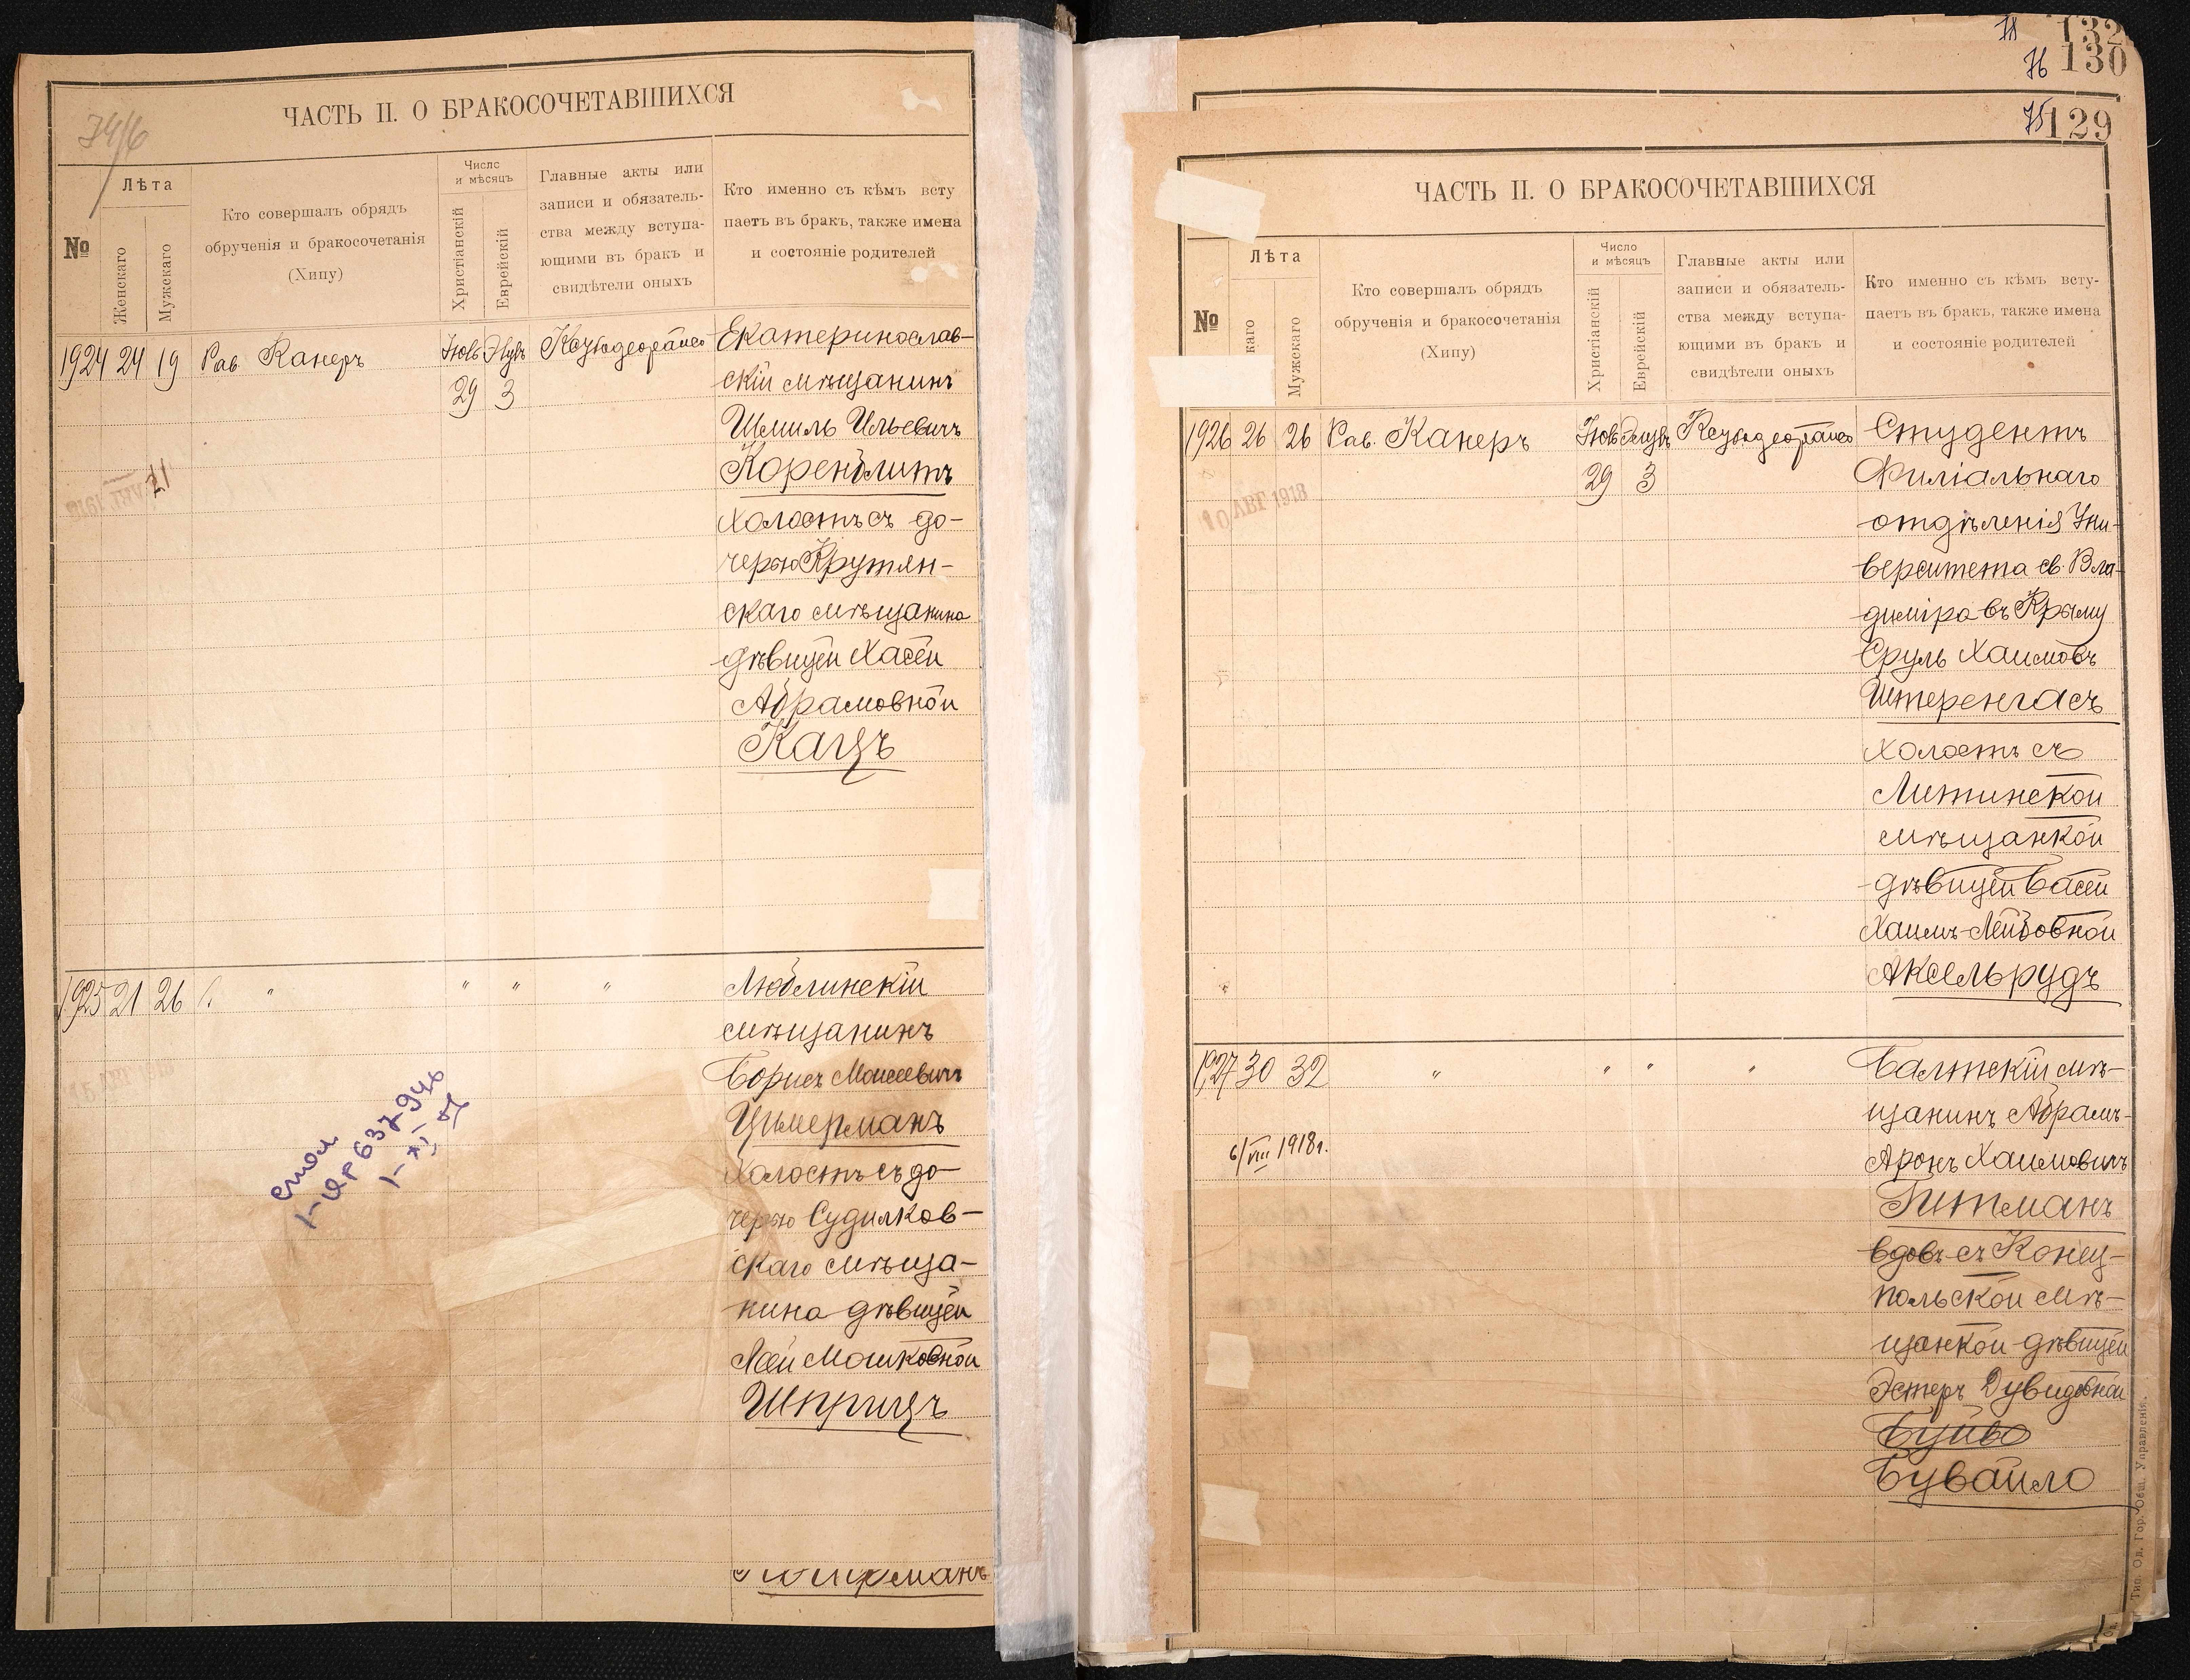 ЧАСТЬ II. О БРАКОСОЧЕТАВШИХСЯ
№
Лѣта
Женскаго
Мужскаго
Кто совершалъ обрядъ
обрученія и бракосочетанія
(Хипу)
Число
и мѣсяцъ
Христіанскій
Еврейскій
Главные акты или
записи и обязатель-
ства между вступа-
ющими въ бракъ и
свидѣтели оныхъ
Кто именно съ кѣмъ всту
паетъ въ бракъ, также имена
и состояніе родителей
1924 24 19 Рав. Канеръ
29 3
Екатеринослав-
скій мѣщанинъ
Шмиль Ильевичъ
Коренблитъ
холостъ съ до-
черью Крутян-
скаго мѣщанина
дѣвицей Хасей
Абрамовной
Кацъ
1925 21 26 " " " "
Люблинскій
мѣщанинъ
Борисъ Моисеевичъ
Цимерманъ
холостъ съ до-
черью Судилков-
скаго мѣща-
нина дѣвицей
Леей Мошковной
Шприцъ
132
130
76
75 129
ЧАСТЬ II. О БРАКОСОЧЕТАВШИХСЯ
№
Лѣта
каго
Мужскаго
Кто совершалъ обрядъ
обрученія и бракосочетанія
(Хипу)
Число
и мѣсяцъ
Христіанскій
Еврейскій
Главные акты или
записи и обязатель-
ства между вступа-
ющими въ бракъ и
свидѣтели оныхъ
Кто именно съ кѣмъ всту-
паетъ въ бракъ, также имена
и состояніе родителей
1926 26 26 Рав. Канеръ
29 3
10 АВГ 1918
Студентъ
Филіальнаго
отдѣленія Уни-
верситета св. Вла-
диміра въ Крыму
Сруль Хаимовъ
Штеренгасъ
холостъ съ
Литинской
мѣщанкой
дѣвицей Басей
Хаимъ-Лейбовной
Аксельрудъ
1927 30 32 " " " "
6/VIII 1918 г.
Балтскій мѣ-
щанинъ Абрамъ-
Аронъ Хаимовичъ
Гитманъ
вдовъ съ Конец-
польской мѣ-
щанкой дѣвицей
Эстеръ Дувидовной
Бувайло
Тип. Од. Гор. Общ. Управленія.